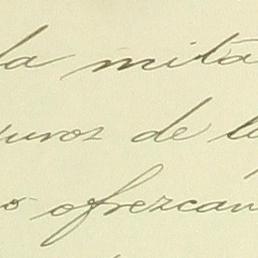 la mita
uros de l
o ofrezcan